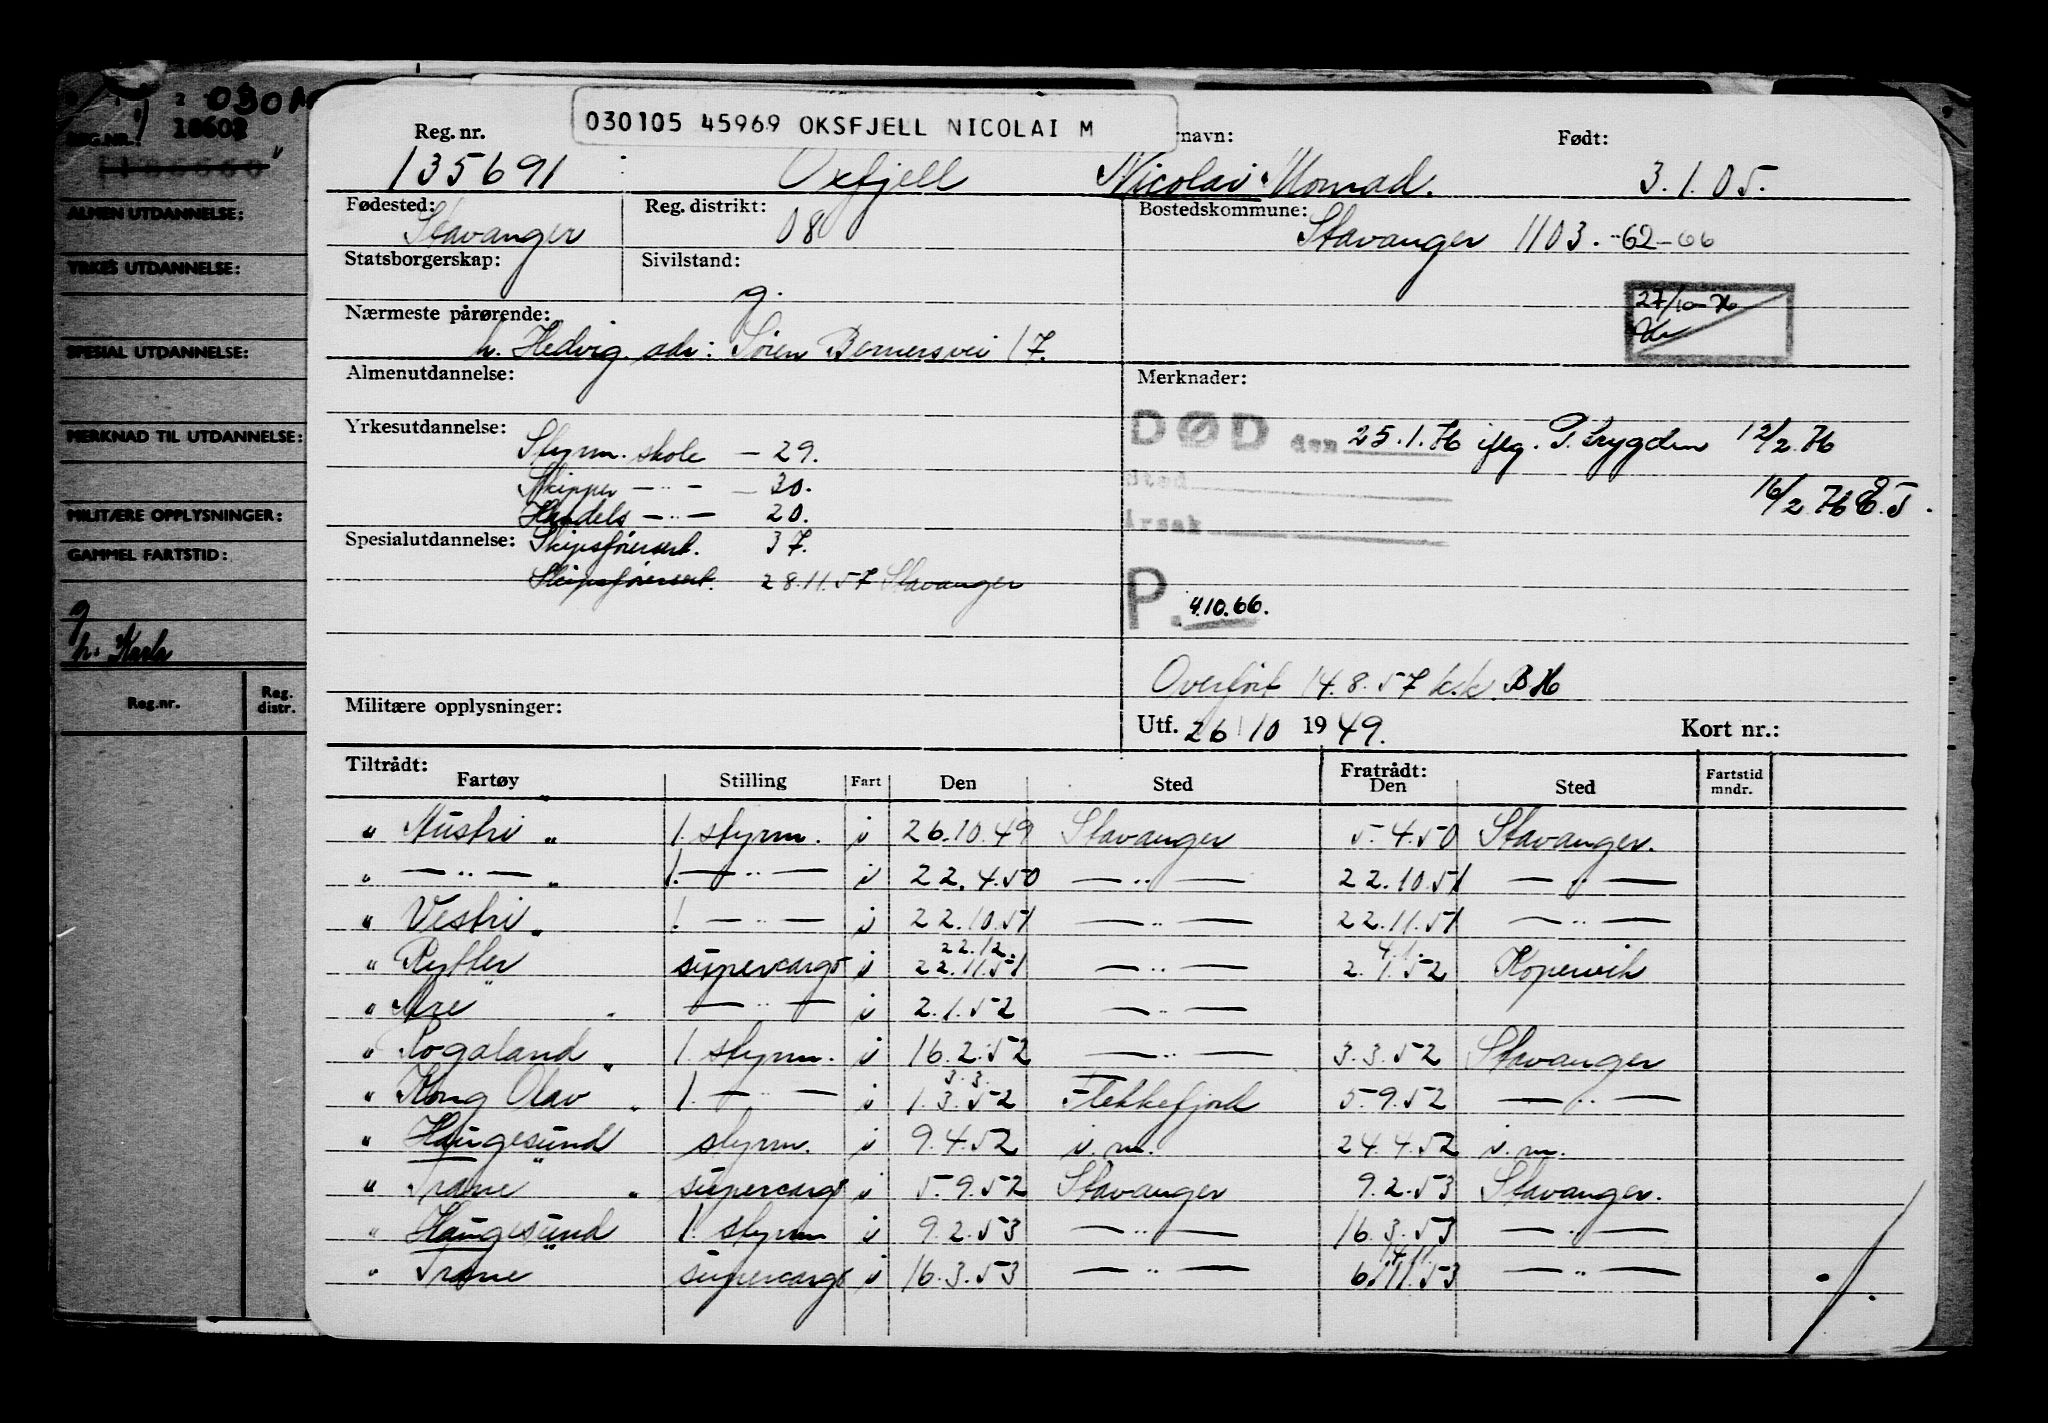 030105 45969 OKSFJELL NICOLAI M
REG.NR. 18608
ALMEN UTDANNELSE:
YRKES UTDANNELSE:
SPESIAL UTDANNELSE:
MERKNAD TIL UTDANNELSE:
MILITÆRE OPPLYSNINGER:
GAMMEL FARTSTID:
g
h.
Reg.nr. Reg. distr.
Reg. nr. rnavn: Født:
135691 Oxfjell Nicolai Monrad. 3.1.05.
Fødested: Reg. distrikt: Bostedskommune:
Stavanger 08 Stavanger 1103. -62-66
Statsborgerskap: Sivilstand:
g.
27/10-76
Nærmeste pårørende:
h. Hedvig. adr: Søren Bernersvei 17.
Almenutdannelse: Merknader:
DØD den 25.1.76 iflg. P. trygden 12/2.76
Yrkesutdannelse:
Styrm. skole — 29.
Sted 16/2.76 E.T.
Skipper — " — — 30.
Handels — " — 20.
Årsak
Spesialutdannelse: Skipsførersert. 37.
Skipsførersert. 28.11.57 Stavanger
P. 4.10.66.
Overført 14.8.57 k.k. BH
Militære opplysninger: Utf. 26/10 1949. Kort nr.:
Tiltrådt: Fratrådt:
Fartøy Stilling Fart Den Sted Den Sted Fartstid mndr.
" Austri " 1. styrm. i 26.10.49 Stavanger 5.4.50 Stavanger.
" — " — " 1. — " — i 22.4.50 — " — 22.10.51 — " —
" Vestri " 1. — " — i 22.10.51 — " — 22.11.51 — " —
22.12. 4.1.
" Ryfler " supercargo i 22.11.51 — " — 2.1.52 Kopervik
" Are " — " — i 2.1.52 — " —
" Rogaland " 1. styrm. i 16.2.52 — " — 3.3.52 Stavanger
3.3.
" Kong Olav " 1. — " — i 1.3.52 Flekkefjord 5.9.52 — " —
" Haugesund " styrm. i 9.4.52 i.m. 24.4.52 i.m.
" Trane " supercargo i 5.9.52 Stavanger 9.2.53 Stavanger.
" Haugesund " 1. styrm i 9.2.53 — " — 16.3.53 — " —
14.11.
" Trane supercargo i 16.3.53 — " — 6.11.53 — " —